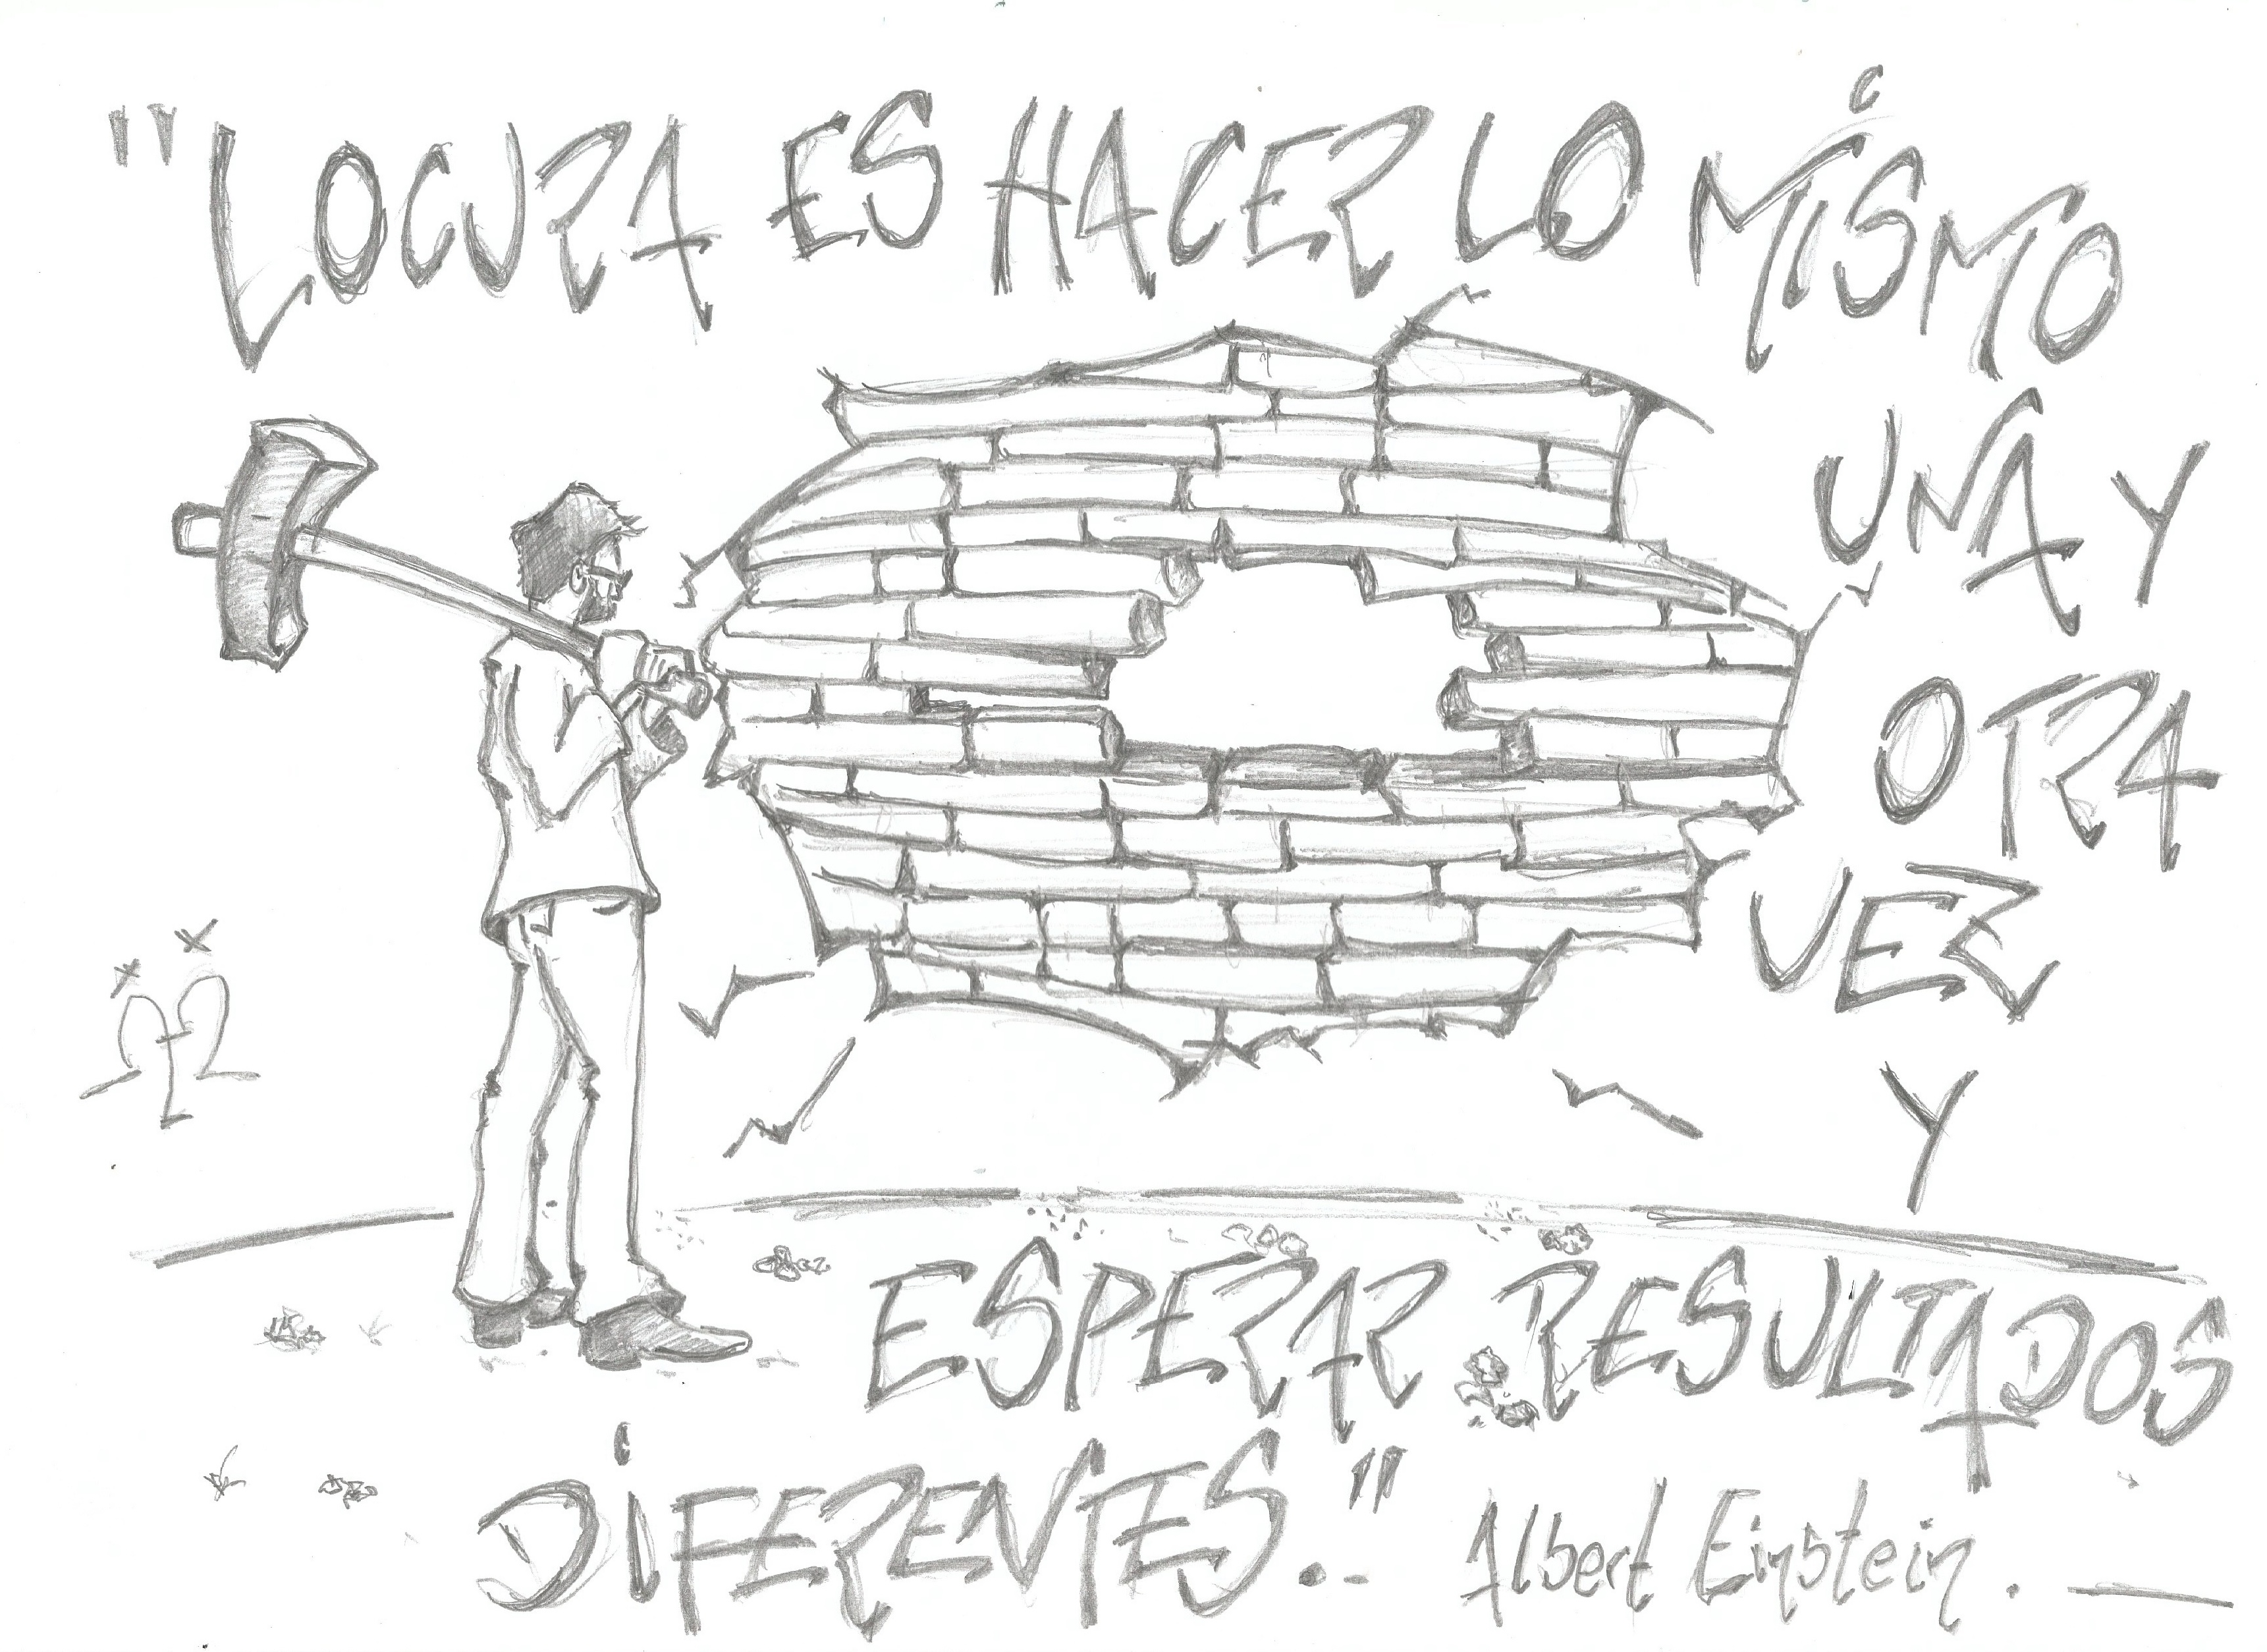 "LOCURA ES HACER LO MiSMO
UNA Y
OTRA
VEZ
Y
ESPERAR RESULTADOS
DiFERENTES.."
Albert Einstein.